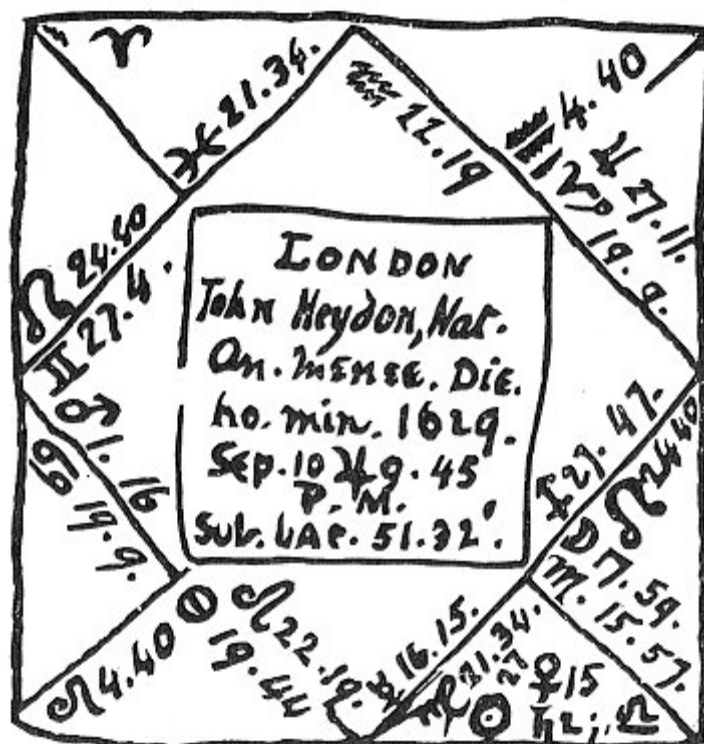 ♈
♓ 21.34.
♒ 22.19
♒ 4.40
♃ 27.11.
♑ 19.9.
☊ 24.40
♊ 27.4.
♂ 1.16
♋ 19.9.
LONDON
John Heydon, Nat.
An. MENSE. Die.
ho. min. 1629.
Sep. 10 ♃ 9.45
P.M.
Sub. LAt. 51.32'.
♐ 27.47.
☋ 24 40
☽ 7.59.
♏ 15.57.
♌ 4.40
19.44
♌ 22.19.
☿ 16.15.
♍ 21.34.
☉ 27
♀ 15
♄ 2; ♎